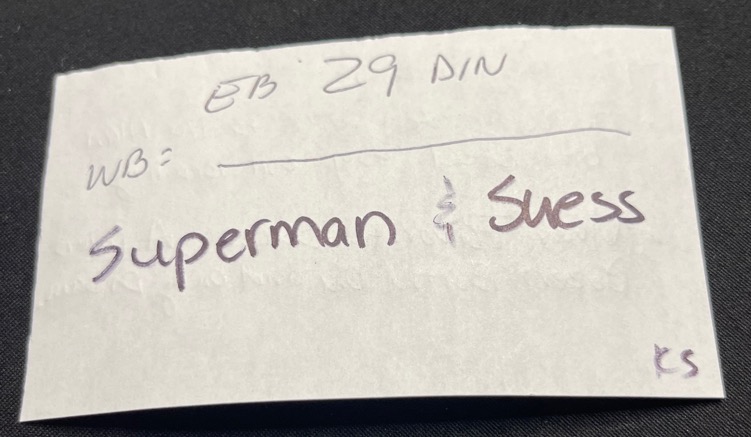 EB 29 DIN
WB =
Superman & Suess
KS